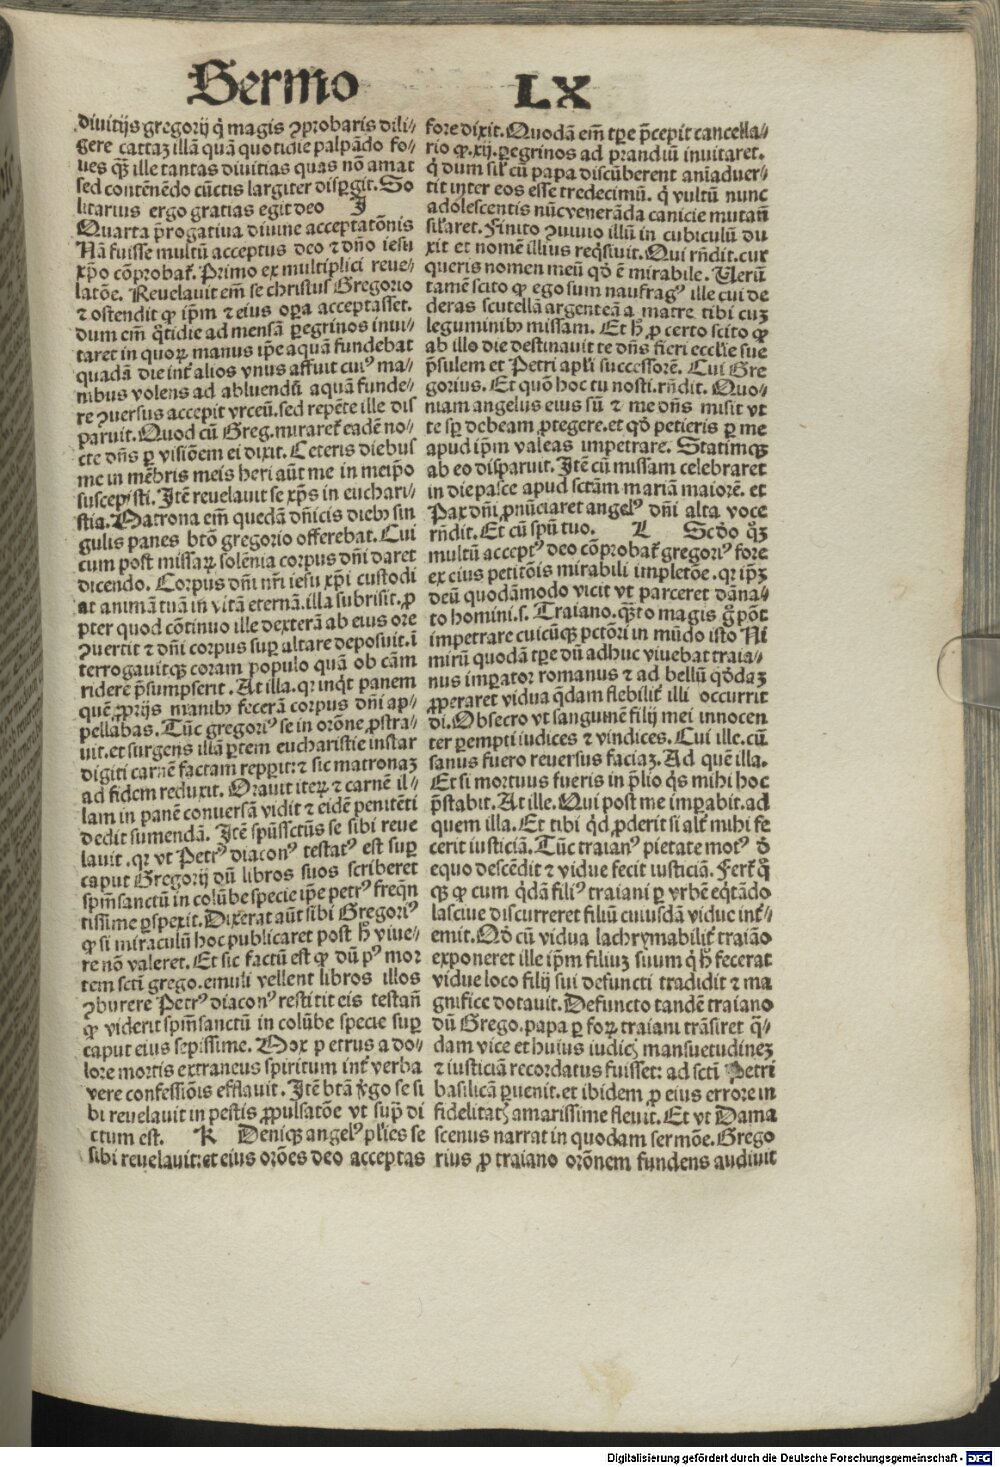 Sermo LX
diuitijs gregorij q̇ magis ꝓprobaris dili⸗
gere cattaz illā quā quotidie palpādo fo⸗
ues qȝ ille tantas diuitias quas nō amat
sed contēnēdo cūctis largiter disꝑgit. So
litarius ergo gratias egit deo J
Quarta p̄rogatiua diuine acceptatōnis
Nā fuisse multū acceptus deo ⁊ dn̄o iesu
xp̄o cōprobat᷑. Primo ex multiplici reue⸗
latōe. Reuelauit em̄ se christus Gregorio
⁊ ostendit ꝙ ip̄m ⁊ eius oꝑa acceptasset.
dum em̄ q̇tidie ad mensā ꝑegrinos inui⸗
taret in quoꝝ manus ip̄e aquā fundebat
quadā die int̄ alios vnus affuit cuiꝰ ma⸗
nibus volens ad abluendū aquā funde⸗
re ꝯuersus accepit vrceū. sed repēte ille dis
paruit. Quod cū Greg. miraret᷑ eadē no⸗
cte dn̄s ꝑ visiōem ei dixit. Ceteris diebus
me in mēbris meis heri aūt me in meip̄o
suscepisti. Itē reuelauit se xp̄s in euchari⸗
stia. Matrona em̄ quedā dn̄icis diebꝰ sin
gulis panes btō gregorio offerebat. Cui
cum post missaꝝ solēnia corpus dn̄i daret
dicendo. Corpus dn̄i nr̄i iesu xp̄i custodi
at animā tuā in vitā eternā. illa subrisit. ꝓ
pter quod cōtinuo ille dexterā ab eius ore
ꝯuertit ⁊ dn̄i corpus suꝑ altare deposuit. ī
terrogauitqȝ coram populo quā ob cām
ridere p̄sumpserit. At illa. qꝛ inq̇t panem
quē ꝓprijs manibꝰ fecerā corpus dn̄i ap⸗
pellabas. Tūc gregoriꝰ se in orōne ꝓstra⸗
uit. et surgens illā ꝑtem eucharistie instar
digiti carnē factam repꝑit: ⁊ sic matronaȝ
ad fidem reduxit. Orauit iteꝝ ⁊ carnē il⸗
lam in panē conuersā vidit ⁊ eidē penitēti
dedit sumendā. Itē sp̄ussctūs se sibi reue
lauit. qꝛ vt Petrꝰ diaconꝰ testatꝰ est suꝑ
caput Gregorij dū libros suos scriberet
sp̄m̄sanctū in colūbe specie ip̄e petrꝰ freq̄n
tissime ꝑspexit. Dixerat aūt sibi Gregoriꝰ
ꝙ si miraculū hoc publicaret post h̄ viue⸗
re nō valeret. Et sic factū est ꝙ dū pꝰ mor
tem scti grego. emuli vellent libros illos
ꝯburere Petrꝰ diaconꝰ restitit eis testan̄
ꝙ viderit sp̄m̄sanctū in colūbe specie suꝑ
caput eius sepissime. Mox petrus a do⸗
lore mortis extraneus spiritum int̄ verba
vere confessiōis efflauit. Itē btā v̇go se si
bi reuelauit in pestis ꝓpulsatōe vt supͣ di
ctum est. K Deniqȝ angelꝰ plīes se
sibi reuelauit: et eius orōes deo acceptas
fore dixit. Quodā em̄ tꝑe p̄cepit cancella⸗
rio ꝙ .xij. ꝑegrinos ad prandiū inuitaret.
q̇ dum sil̄ cū papa discūberent aīaduer⸗
tit inter eos esse tredecimū. q̇ vultū nunc
adolescentis nūc venerāda canicie mutan̄
sil̄aret. Finito ꝯuiuio illū in cubiculū du
xit et nomē illius reqsiuit. Qui rn̄dit. cur
queris nomen meū qd̓ ē mirabile. Uerū
tamē scito ꝙ ego sum naufragꝰ ille cui de
deras scutellā argenteā a matre tibi cuȝ
leguminibꝰ missam. Et h̄ ꝓ certo scito ꝙ
ab illo die destinauit te dn̄s fieri ecclīe sue
p̄sulem et Petri apl̄i successorē. Cui Gre
gorius. Et quō hoc tu nosti. rn̄dit. Quo⸗
niam angelus eius sū ⁊ me dn̄s misit vt
te sꝑ debeam ꝓtegere. et qd̓ petieris ꝑ me
apud ip̄m valeas impetrare. Statimqȝ
ab eo disparuit. Itē cū missam celebraret
in die pasce apud sctām mariā maiorē. et
Pax dn̄i ꝓnūciaret angelꝰ dn̄i alta voce
rn̄dit. Et cū sp̄u tuo. L Scd̓o q̇ȝ
multū acceptꝰ deo cōprobat᷑ gregoriꝰ fore
ex eius petitōis mirabili impletōe. qꝛ ip̄ȝ
deū quodāmodo vicit vt parceret dāna⸗
to homini. s. Traiano. qȝto magis g̊ pōt
impetrare cuicūqȝ pctōri in mūdo isto Ni
mirū quodā tꝑe dū adhuc viuebat traia⸗
nus imꝑator romanus ⁊ ad bellū qd̓daȝ
ꝓperaret vidua q̄dam flebilit᷑ illi occurrit
di. Obsecro vt sanguinē filij mei innocen
ter ꝑempti iudices ⁊ vindices. Cui ille. cū
sanus fuero reuersus faciaȝ. Ad quē illa.
Et si mortuus fueris in p̄lio q̇s mihi hoc
p̄stabit. At ille. Qui post me imꝑabit. ad
quem illa. Et tibi qd̓ ꝓderit si alt᷑ mihi fe
cerit iusticiā. Tūc traianꝰ pietate motꝰ d̓
equo descēdit ⁊ vidue fecit iusticiā. Fert᷑ q̊
qȝ ꝙ cum q̇dā filiꝰ traiani ꝑ vrbē eq̇tādo
lasciue discurreret filiū cuiusdā vidue int̄⸗
emit. Qd̓ cū vidua lachrymabilit᷑ traiāo
exponeret ille ip̄m filiuȝ suum q̇ h̄ fecerat
vidue loco filij sui defuncti tradidit ⁊ ma
gnifice dotauit. Defuncto tandē traiano
dū Grego. papa ꝑ foꝝ traiani trāsiret q̄⸗
dam vice et huius iudicꝭ mansuetudineȝ
⁊ iusticiā recordatus fuisset: ad scti Petri
basilicā ꝑuenit. et ibidem ꝓ eius errore in
fidelitatꝭ amarissime fleuit. Et vt Dama
scenus narrat in quodam sermōe. Grego
rius ꝓ traiano orōnem fundens audiuit
Digitalisierung gefördert durch die Deutsche Forschungsgemeinschaft - DFG